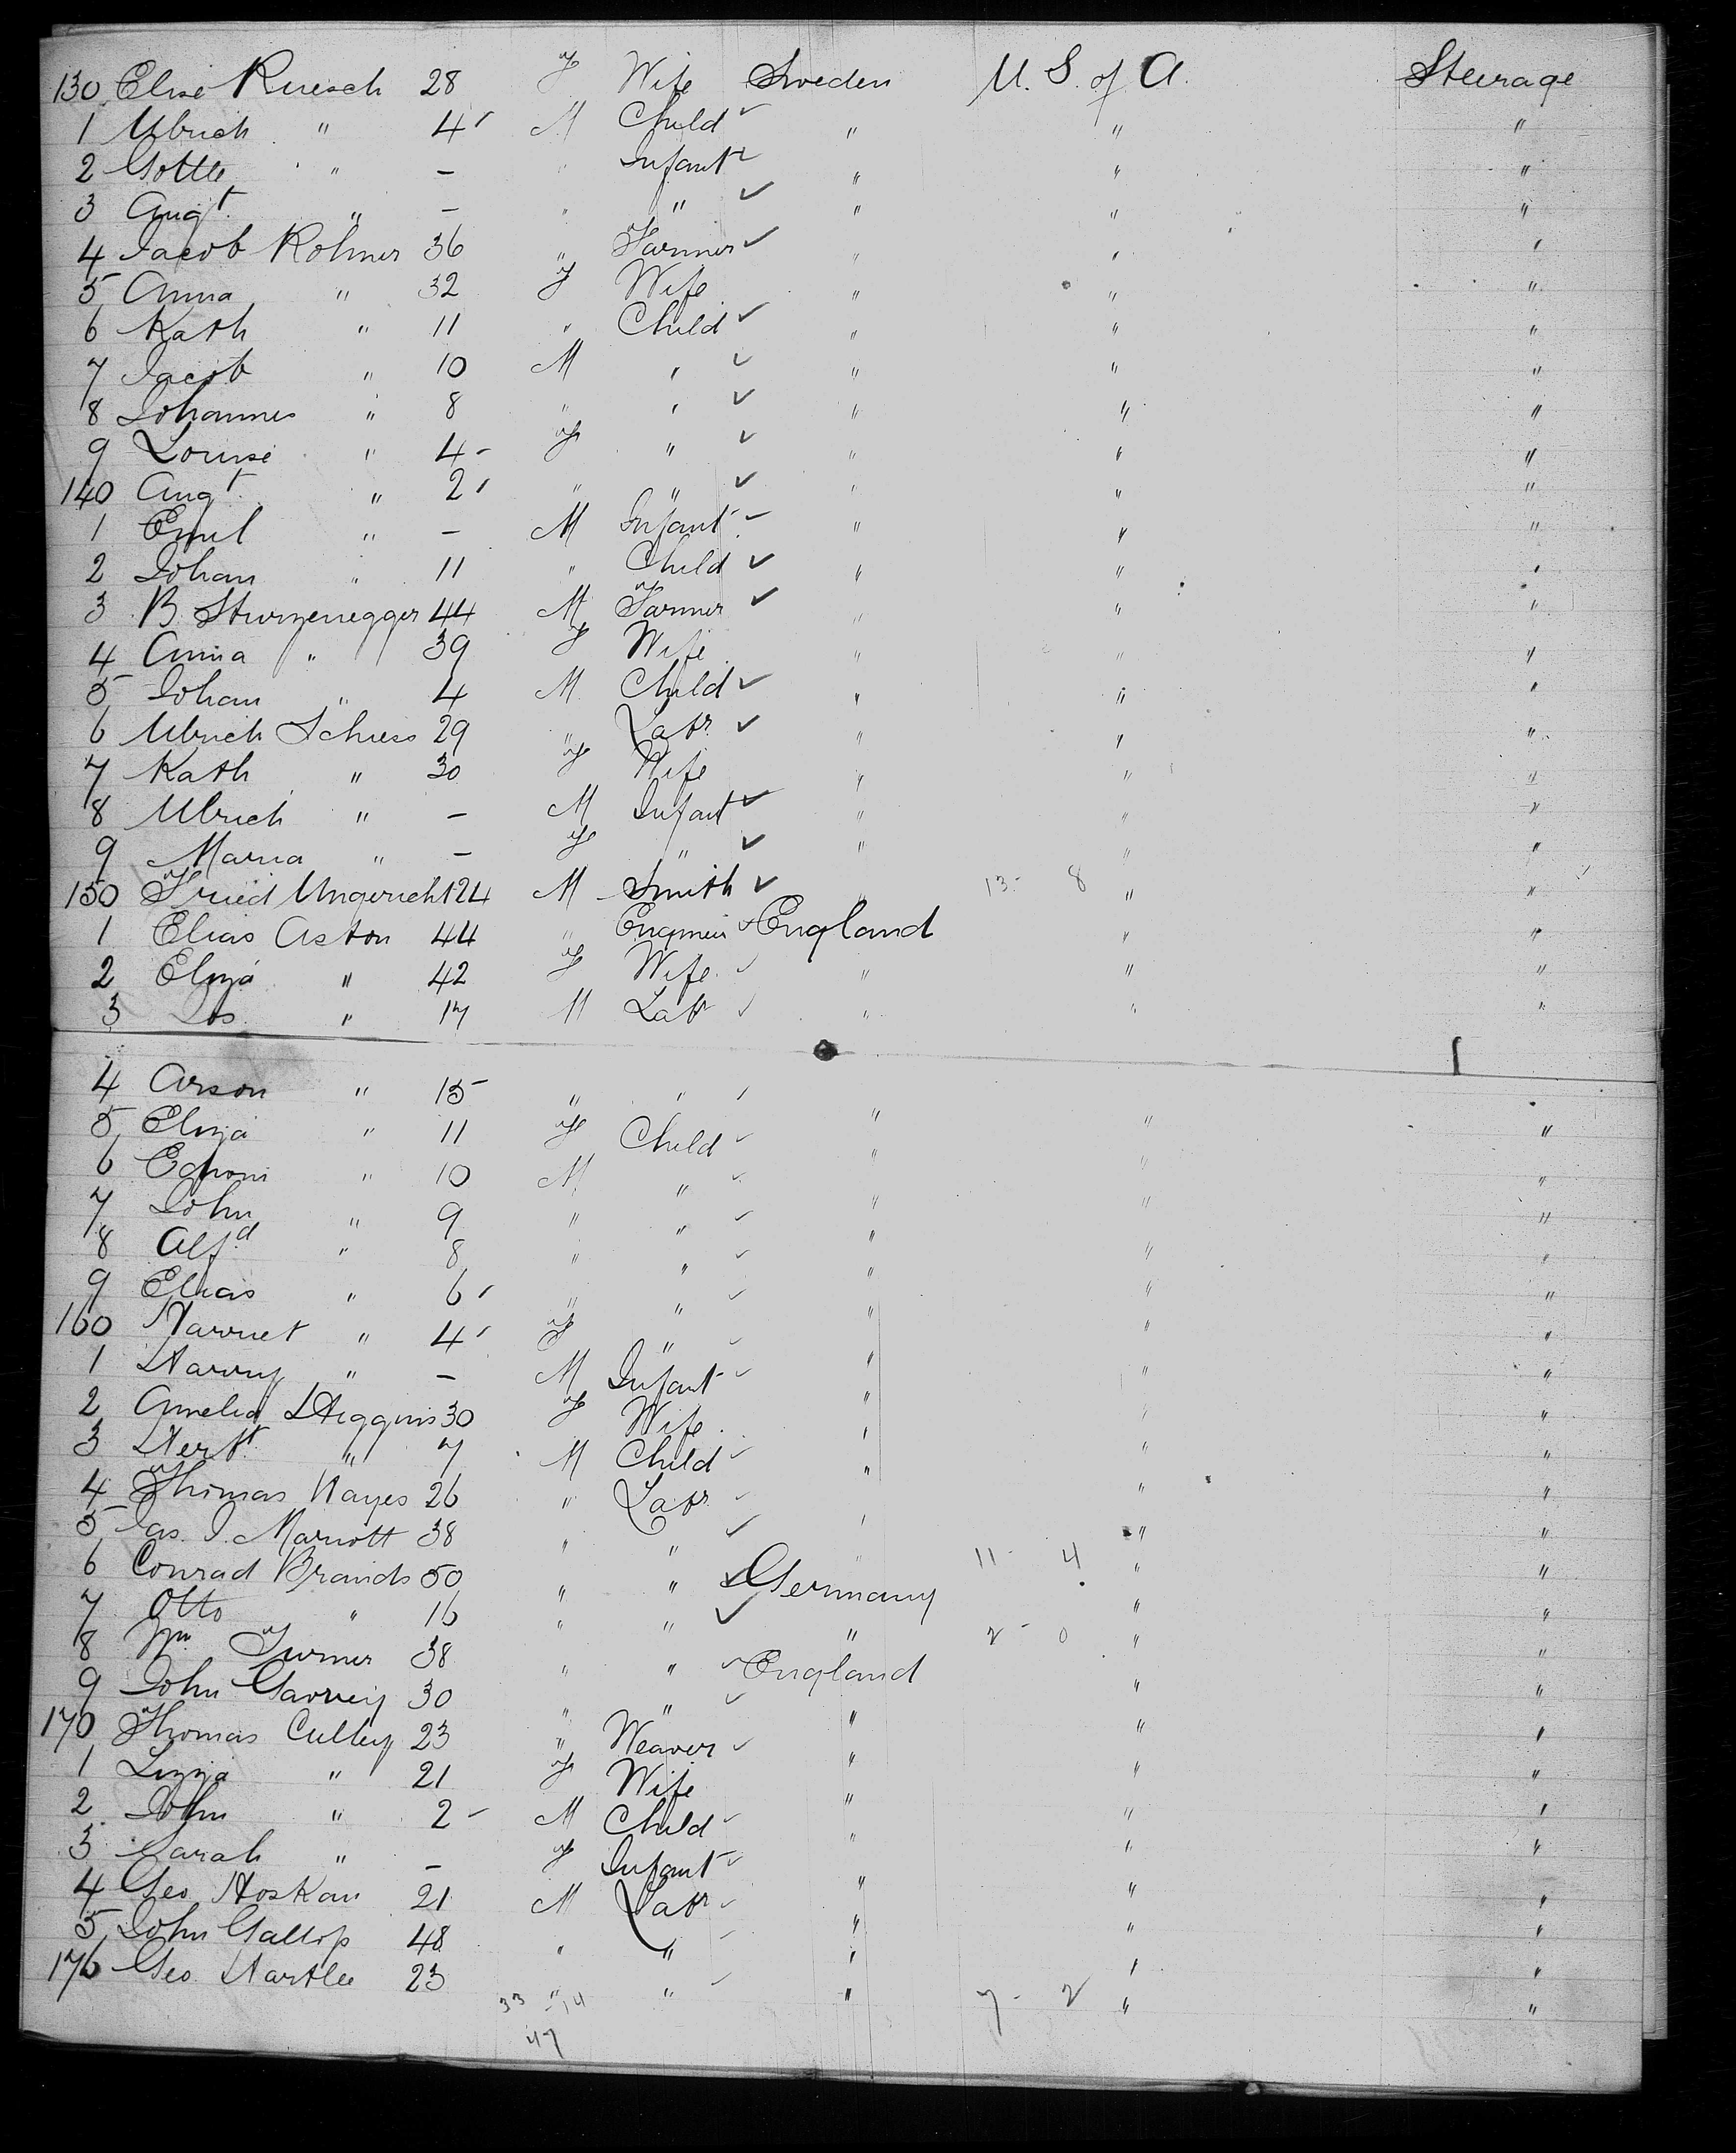 130 Elise Ruesch 28 F Wife Sweden U. S. of A. Steerage
1 Ulrich " 4 M Child " " "
2 Gottle " — " Infant " " "
3 Augt " — " " " " "
4 Jacob Rohner 36 " Farmer " " "
5 Anna " 32 F Wife " " "
6 Kath " 11 " Child " " "
7 Jacob " 10 M " " " "
8 Johannes " 8 " " " " "
9 Louise " 4 F " " " "
140 Augt " 2 " " " " "
1 Emil " — M Infant " " "
2 Johan " 11 " Child " " "
3 B. Sturzenegger 44 M Farmer " " "
4 Anna " 39 F Wife " " "
5 Johan " 4 M Child " " "
6 Ulrich Schiess 29 " Labr " " "
7 Kath " 30 F Wife " " "
8 Ulrich " — M Infant " " "
9 Maria " — F " " " "
150 Fried Ungericht 24 M Smith " 13 - 8 " "
1 Elias Aston 44 " Engineer England " "
2 Eliza " 42 F Wife " " "
3 Jos " 17 M Labr " " "
4 Arson " 15 " " " " "
5 Eliza " 11 F Child " " "
6 " 10 M " " " "
7 John " 9 " " " " "
8 Alfd " 8 " " " " "
9 Elias " 6 " " " " "
160 Harriet " 4 F " " " "
1 Harry " — M Infant " " "
2 Amelia Higgins 30 F Wife " " "
3 Herbt " 7 M Child " " "
4 Thomas Hayes 26 " Labr " " "
5 Jas. J. Marriott 38 " " " 11 - 4 " "
6 Conrad Brands 50 " " Germany " "
7 Otto " 16 " " " 2 - 0 " "
8 Wm Turner 38 " " England " "
9 John Garvey 30 " " " " "
170 Thomas Culley 23 " Weaver " " "
1 Lizzie " 21 F Wife " " "
2 John " 2 M Child " " "
3 Sarah " — F Infant " " "
4 Geo Hoskan 21 M Labr " " "
5 John Gallop 48 " " " " "
176 Geo. Hartlee 23 " " " 7 - 2 " "
33 - 14
47